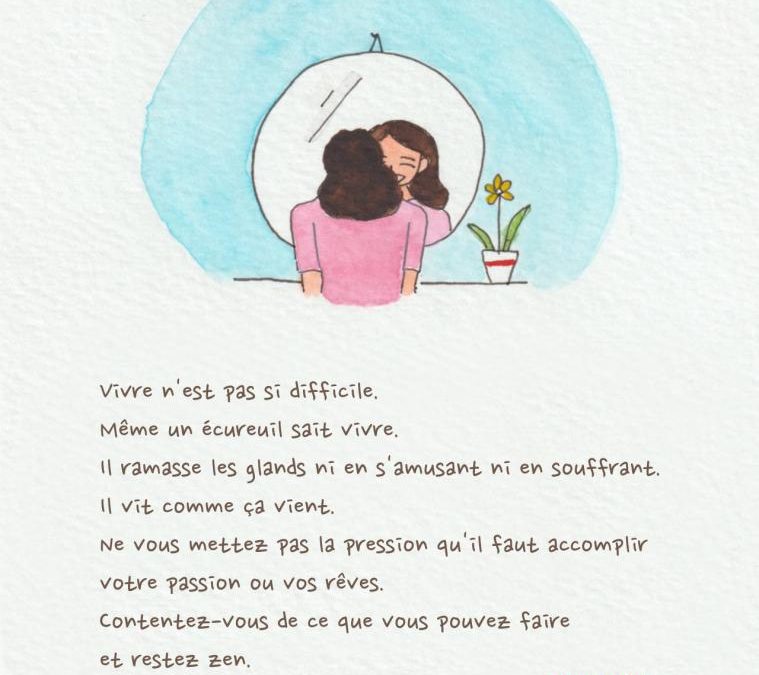 Vivre n'est pas si difficile.
Même un écureuil sait vivre.
Il ramasse les glands ni en s'amusant ni en souffrant.
Il vit comme ça vient.
Ne vous mettez pas la pression qu'il faut accomplir
votre passion ou vos rêves.
Contentez-vous de ce que vous pouvez faire
et restez zen.